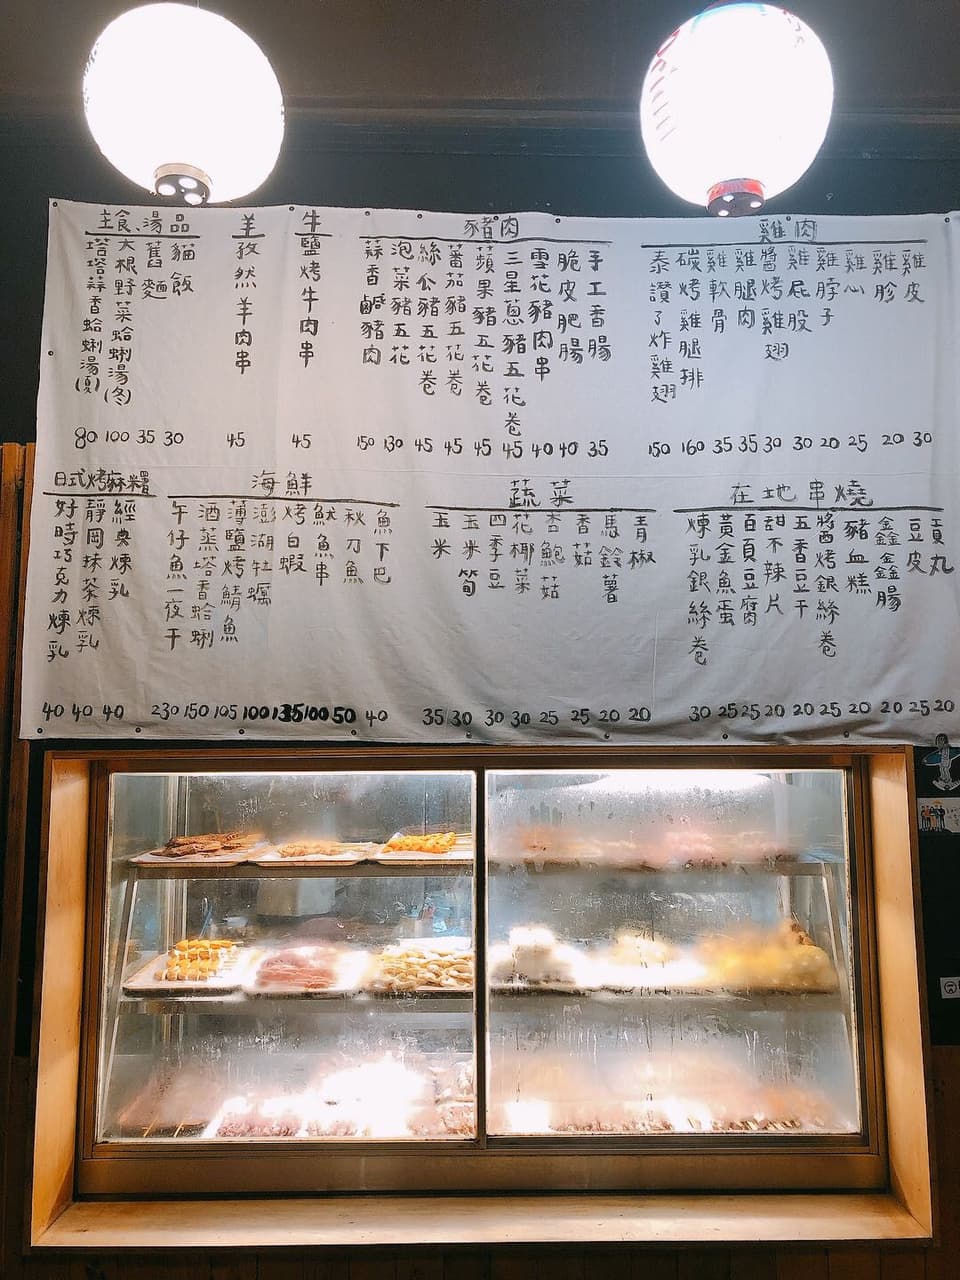 雞肉
雞皮 30
雞胗 20
雞心 25
雞脖子 20
雞屁股 30
醬烤雞翅 30
雞腿肉 35
雞軟骨 35
碳烤雞腿排 160
泰讚了炸雞翅 150
豬肉
手工香腸 35
脆皮肥腸 40
雪花豬肉串 40
三星蔥豬五花卷 45
蘋果豬五花卷 45
蕃茄豬五花卷 45
絲瓜豬五花卷 45
泡菜豬五花 130
蒜香鹹豬肉 150
牛
鹽烤牛肉串 45
羊
孜然羊肉串 45
主食、湯品
貓飯 30
舊麵 35
大根野菜蛤蜊湯(冬) 100
塔塔蒜香蛤蜊湯(夏) 80
在地串燒
貢丸 20
豆皮 25
鑫鑫腸 20
豬血糕 20
醬烤銀絲卷 25
五香豆干 20
甜不辣片 20
百頁豆腐 25
黃金魚蛋 25
煉乳銀絲卷 30
蔬菜
青椒 20
馬鈴薯 20
香菇 25
杏鮑菇 25
花椰菜 30
四季豆 30
玉米筍 30
玉米 35
海鮮
魚下巴 40
秋刀魚 50
魷魚串 100
烤白蝦 135
澎湖牡蠣 100
薄鹽烤鯖魚 105
酒蒸塔香蛤蜊 150
午仔魚一夜干 230
日式烤麻糬
經典煉乳 40
靜岡抹茶煉乳 40
好時巧克力煉乳 40